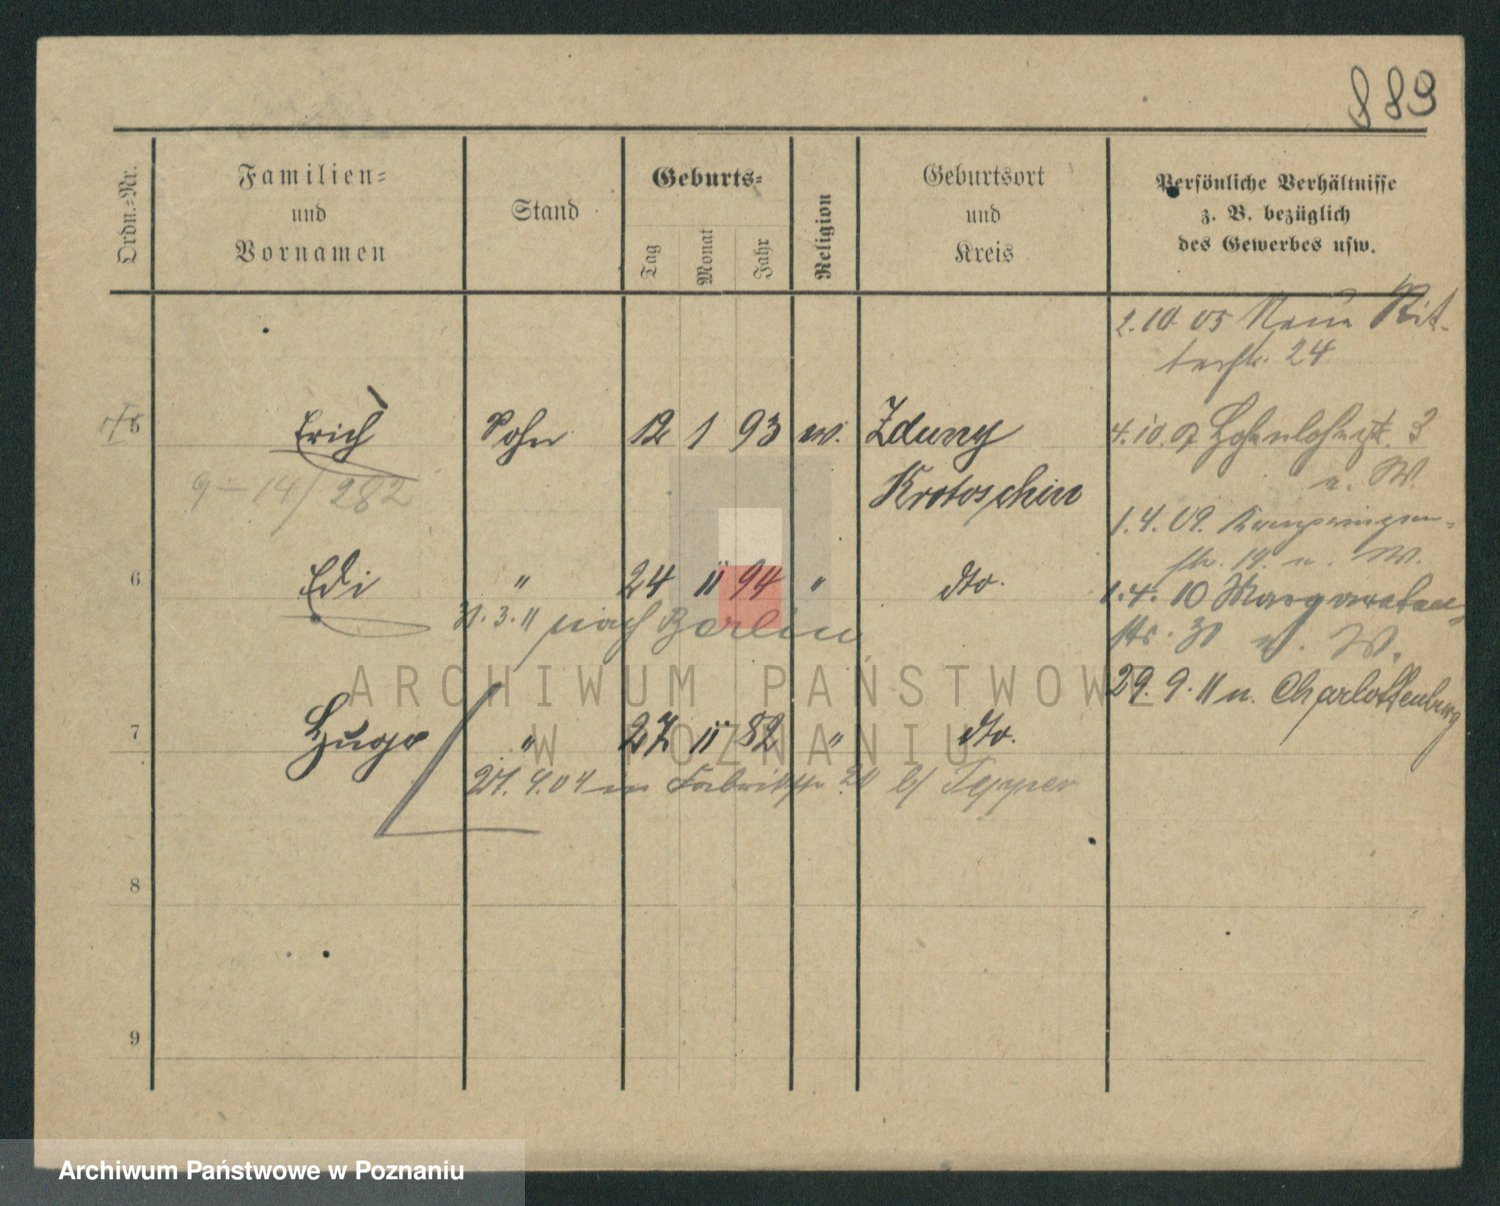 889
Ordn.-Nr.
Familien-
und
Vornamen
Stand
Geburts-
Tag
Monat
Jahr
Religion
Geburtsort
und
Kreis
Persönliche Verhältnisse
z. B. bezüglich
des Gewerbes usw.
2.10.05 Neue Rit-
terstr. 24
5 Erich Sohn 12 1 93 m. Zduny
Krotoschin
9-14/282
4.10.07 Hohenlohestr. 3
n. W.
1.4.09.
str. 19. n. W.
6 Edi " 24 11 94 " dto.
31.3.11 nach Berlin
1.4.10 Margareten
str. 30 n. W.
29.9.11 n. Charlottenburg
7 Hugo " 27 11 82 " dto.
27.4.04 in Fabrikstr 20 b/ Tepper
8
9
ARCHIWUM PAŃSTWOWE
W POZNANIU
Archiwum Państwowe w Poznaniu